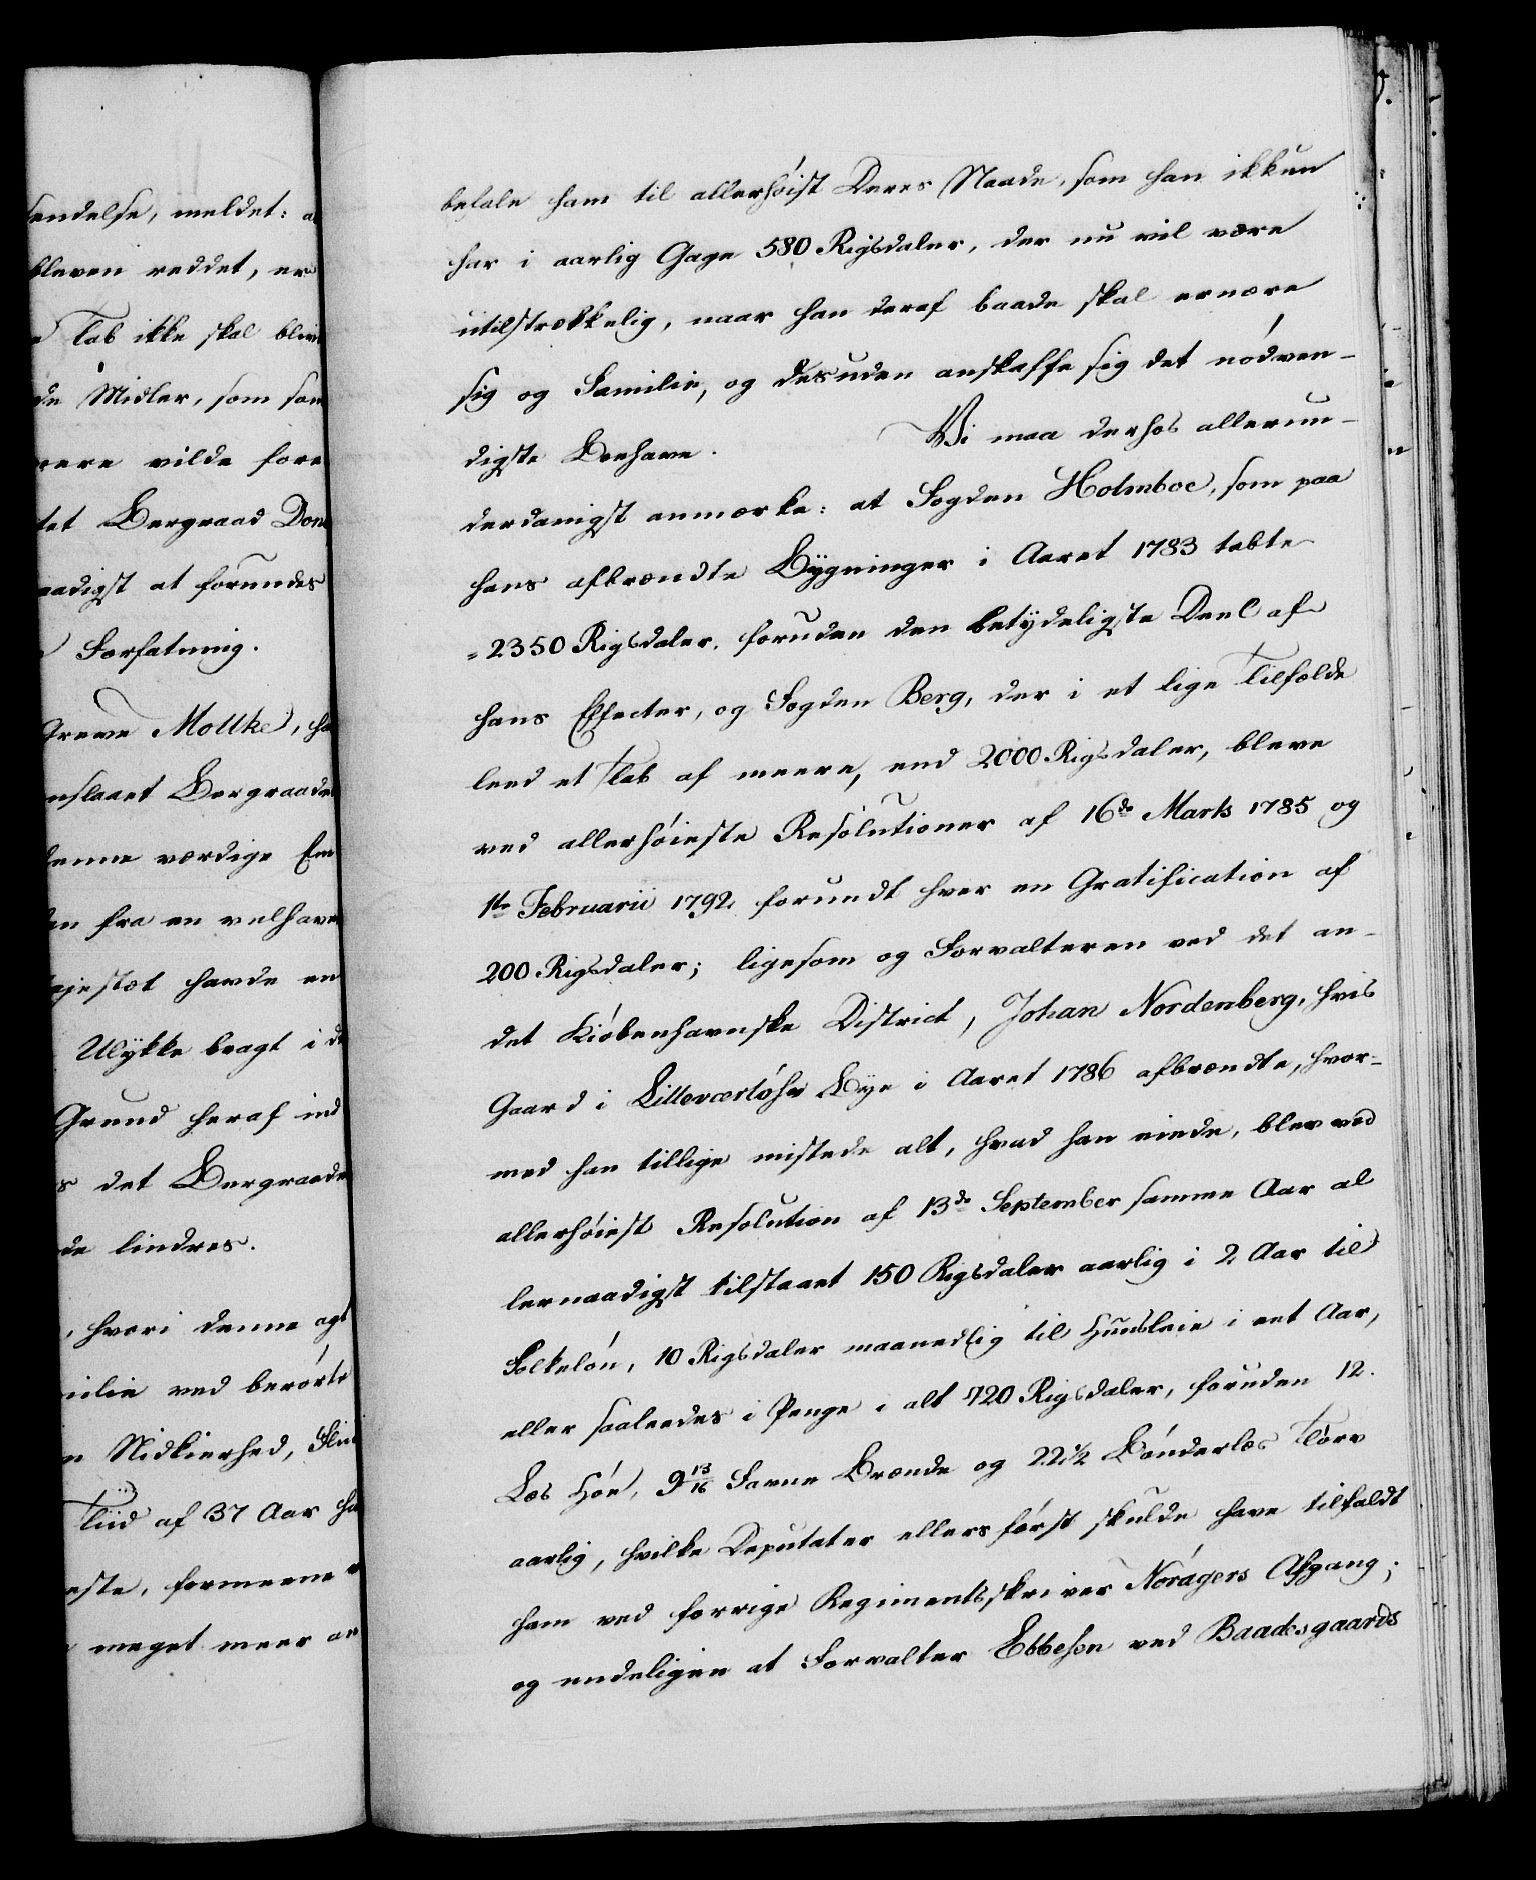 endelse, meldet: a
bleven reddet, er
Tab ikke skal blive
de Midler, som som
vilde fore
tet Bergraad Don
naadigst at forundes
Forfatning.
Greve Moltke, ha
nslaaet Bergraade
denne værdige Em
en fra en velhave
ajestæt havde en
Ulykke bragt i d
Grund heraf ind
s det Bergraade
de lindres.
, hvori denne agt
milie ved berörte
n Nidkierhed, Flii
Tiid af 37 Aar ha
este, formeene
meget meer
befale ham til allerhöist Deres Naade, som han ikkun
har i aarlig Gage 580 Rigsdaler, der nu vil være
utilstrækkelig, naar han deraf baade skal ernære
sig og Familie, og desuden anskaffe sig det nödven-
digste Boehave. Vi maa derhos allerun-
derdanigst anmærke: at Fogden Holmboe, som paa
hans afbrændte Bygninger i Aaret 1783 tabte
=2350 Rigsdaler, foruden den betydeligste Deel af
hans Effecter, og Fogden Berg, der i et lige Tilfælde
leed et Tab af meere, end 2000 Rigsdaler, bleve
ved allerhöieste Resolutioner af 16de Marts 1785 og
1ste Februarii 1792 forundt hver en Gratification af
200 Rigsdaler; ligesom og Forvalteren ved det an-
det Kiöbenhavnske District, Johan Nordenberg, hvis
Gaard i Lilleværlöhse Bye i Aaret 1786 afbrændte, hvor-
med han tillige mistede alt, hvad han eiede, blev ved
allerhöiest Resolution af 13de September samme Aar al
lernaadigst tilstaaet 150 Rigsdaler aarlig i 2 Aar til
Folkelön, 10 Rigsdaler maanedlig til Huusleie i eet Aar,
eller saaledes i Penge i alt 420 Rigsdaler, foruden 12.
Læs Höe, 9 13/16 Favne Brænde og 22 1/2 Bönderlæs Törv
aarlig, hvilke Deputater ellers först skulde have tilfaldt
ham ved forrige Regimentsskriver Norágers Afgang;
og endeligen at Forvalter Ebbesen ved Baadsgaards